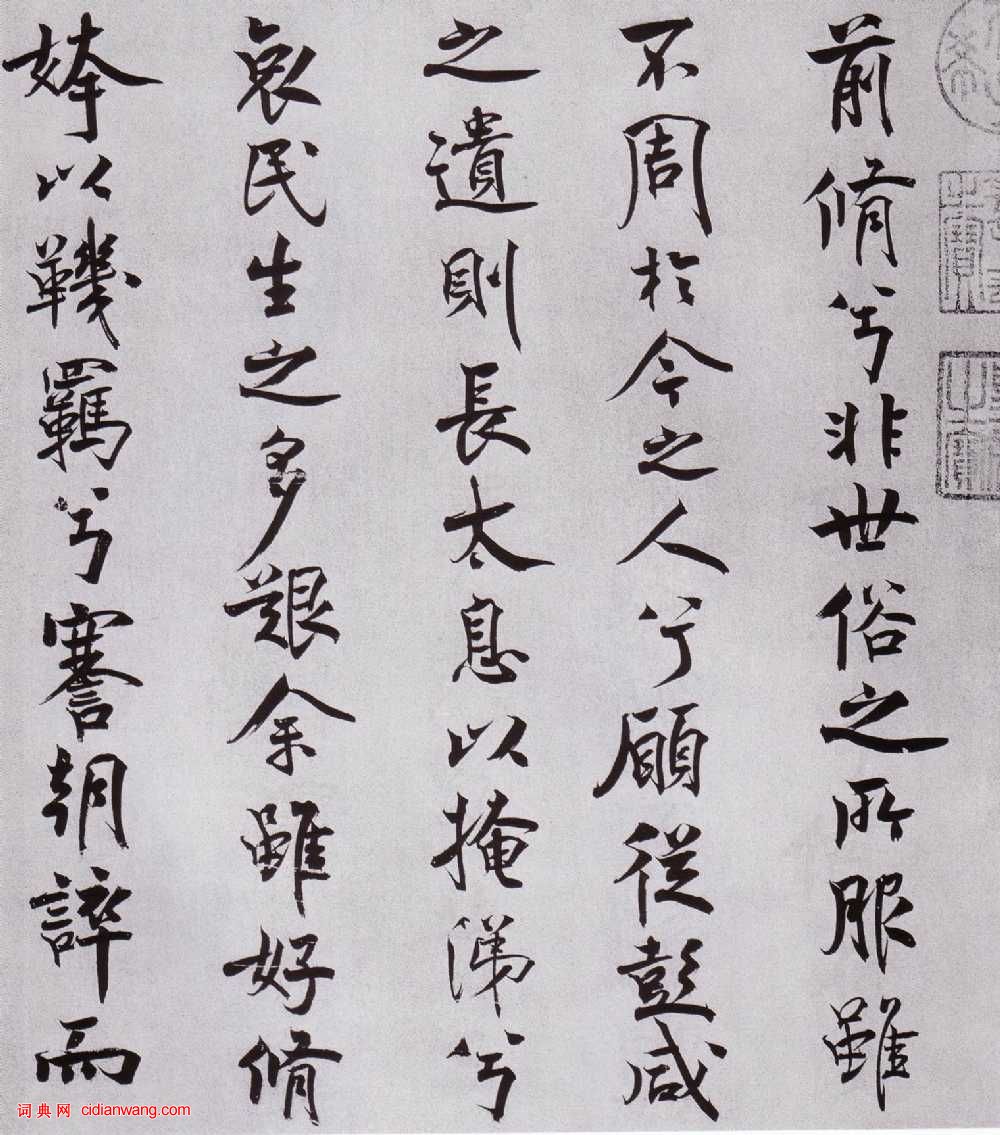 前脩兮非世俗之所服雖
不周於今之人兮願從彭咸
之遺則長太息以掩涕兮
哀民生之多艱余雖好脩
姱以鞿羈兮謇朝誶而
词典网 cidianwang.com